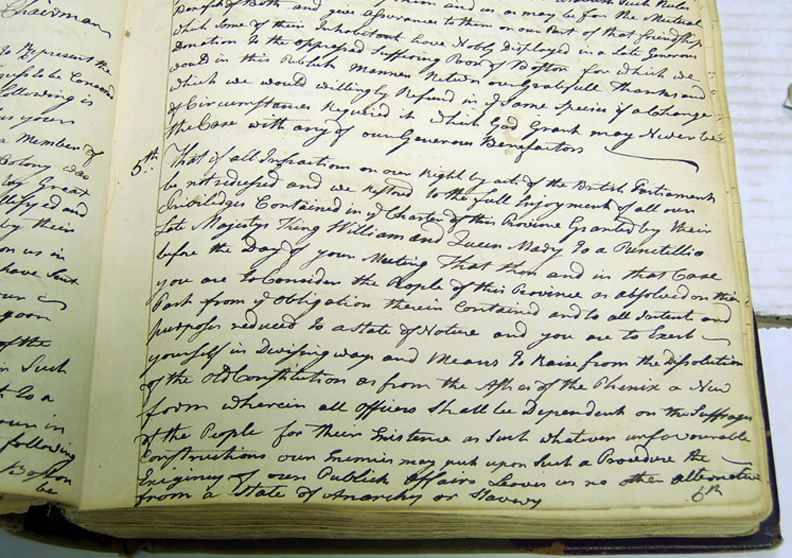 Chairman
to Represent the
following is
a Member of
Colony
by Great
by their
on us in
have Sent
of the
in Such
to a
our in
following
Boston
be
Benefit of Both and give Assurance to them on our Part of that friendship
which Some of their Inhabitants have Nobly Displayed in a Late Generous
Donation to the oppressed Suffering Poor of Boston for which we
would in this Publick Manner Return our Gratefull Thanks and
which we would willingly Refund in ye Same Specias if a Change
of Circumstances Required it which God Grant may Never be
the Case with any of our Generous Benefactors
5th That if all Infractions on our Right by acts of the British Parliament
be not redressed and we restord to the full Enjoyment of all our
Privilidges Contained in ye Charter of this Province Granted by their
Late Majestys King William and Queen Mary to a Punctillio
before the Day of your Meeting That then and in that Case
you are to Consider the People of this Province as absolved on their
Part from ye obligation therein Contained and to all intents and
purposes reduced to a State of Nature and you are to Exert
yourself in Devising ways and Means to Raise from the Dissolution
of the old Constitution as from the Ashes of the Phenix a New
form wherein all officers Shall be Dependent on the Suffrages
of the People for their Existence as Such whatever unfavourable
Constructions our Enemies may put upon Such a Procedure the
Exigincy of our Publick Affairs Leaves us no other alternative
from a State of Anarchy or Slavery
6th